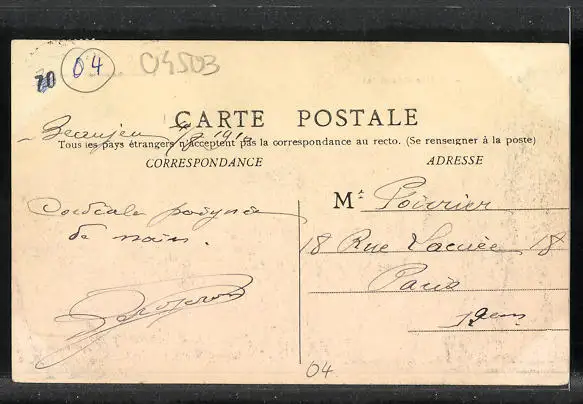 70
04
04503
CARTE POSTALE
Beaujeu
Tous les pays étrangers n'acceptent pas la correspondance au recto. (Se renseigner à la poste)
CORRESPONDANCE
ADRESSE
Cordiale poignée
de main.
Mr Poirier
18 Rue Lacuée 18
Paris
12em
04